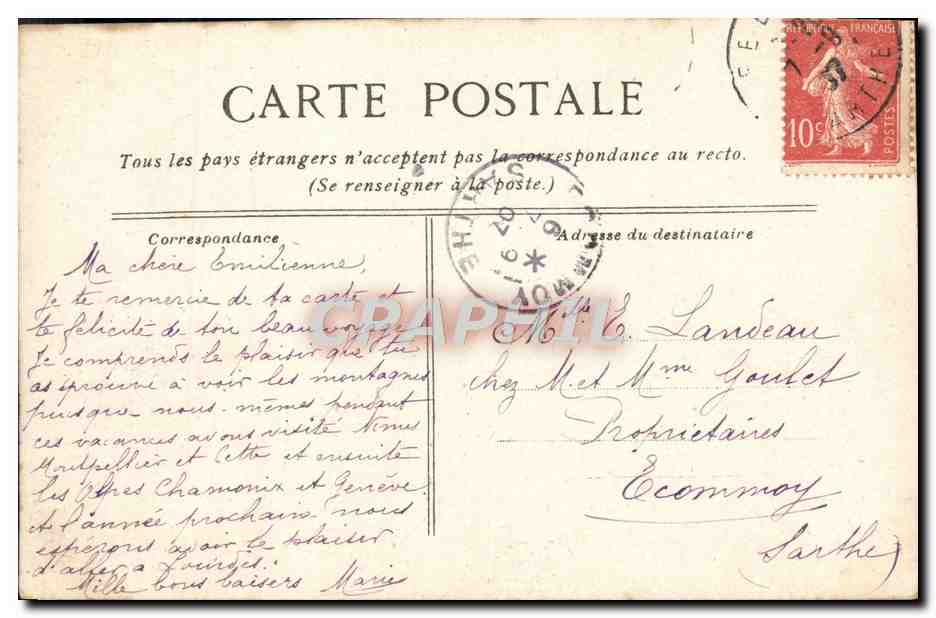 CARTE POSTALE
Tous les pays étrangers n'acceptent pas la correspondance au recto.
(Se renseigner à la poste.)
RÉPUBLIQUE FRANÇAISE
10c
POSTES
SARTHE
ECOMMOY
SARTHE
Correspondance
Ma chère Emilienne,
Je te remercie de ta carte et
te félicite de ton beau voyage
Je comprends le plaisir que tu
as éprouvé à voir les montagnes
puisque nous-mêmes pendant
ces vacances avons visité Nimes
Montpellier et Cette et ensuite
les Alpes Chamonix et Genève.
et l'année prochain nous
espérons avoir le plaisir
d'aller a Lourdes.
Mille bons baisers Marie
Adresse du destinataire
Mlle E. Landeau
chez M. et Mme Goulet
Propriétaires
Ecommoy
Sarthe
CPAPHIL